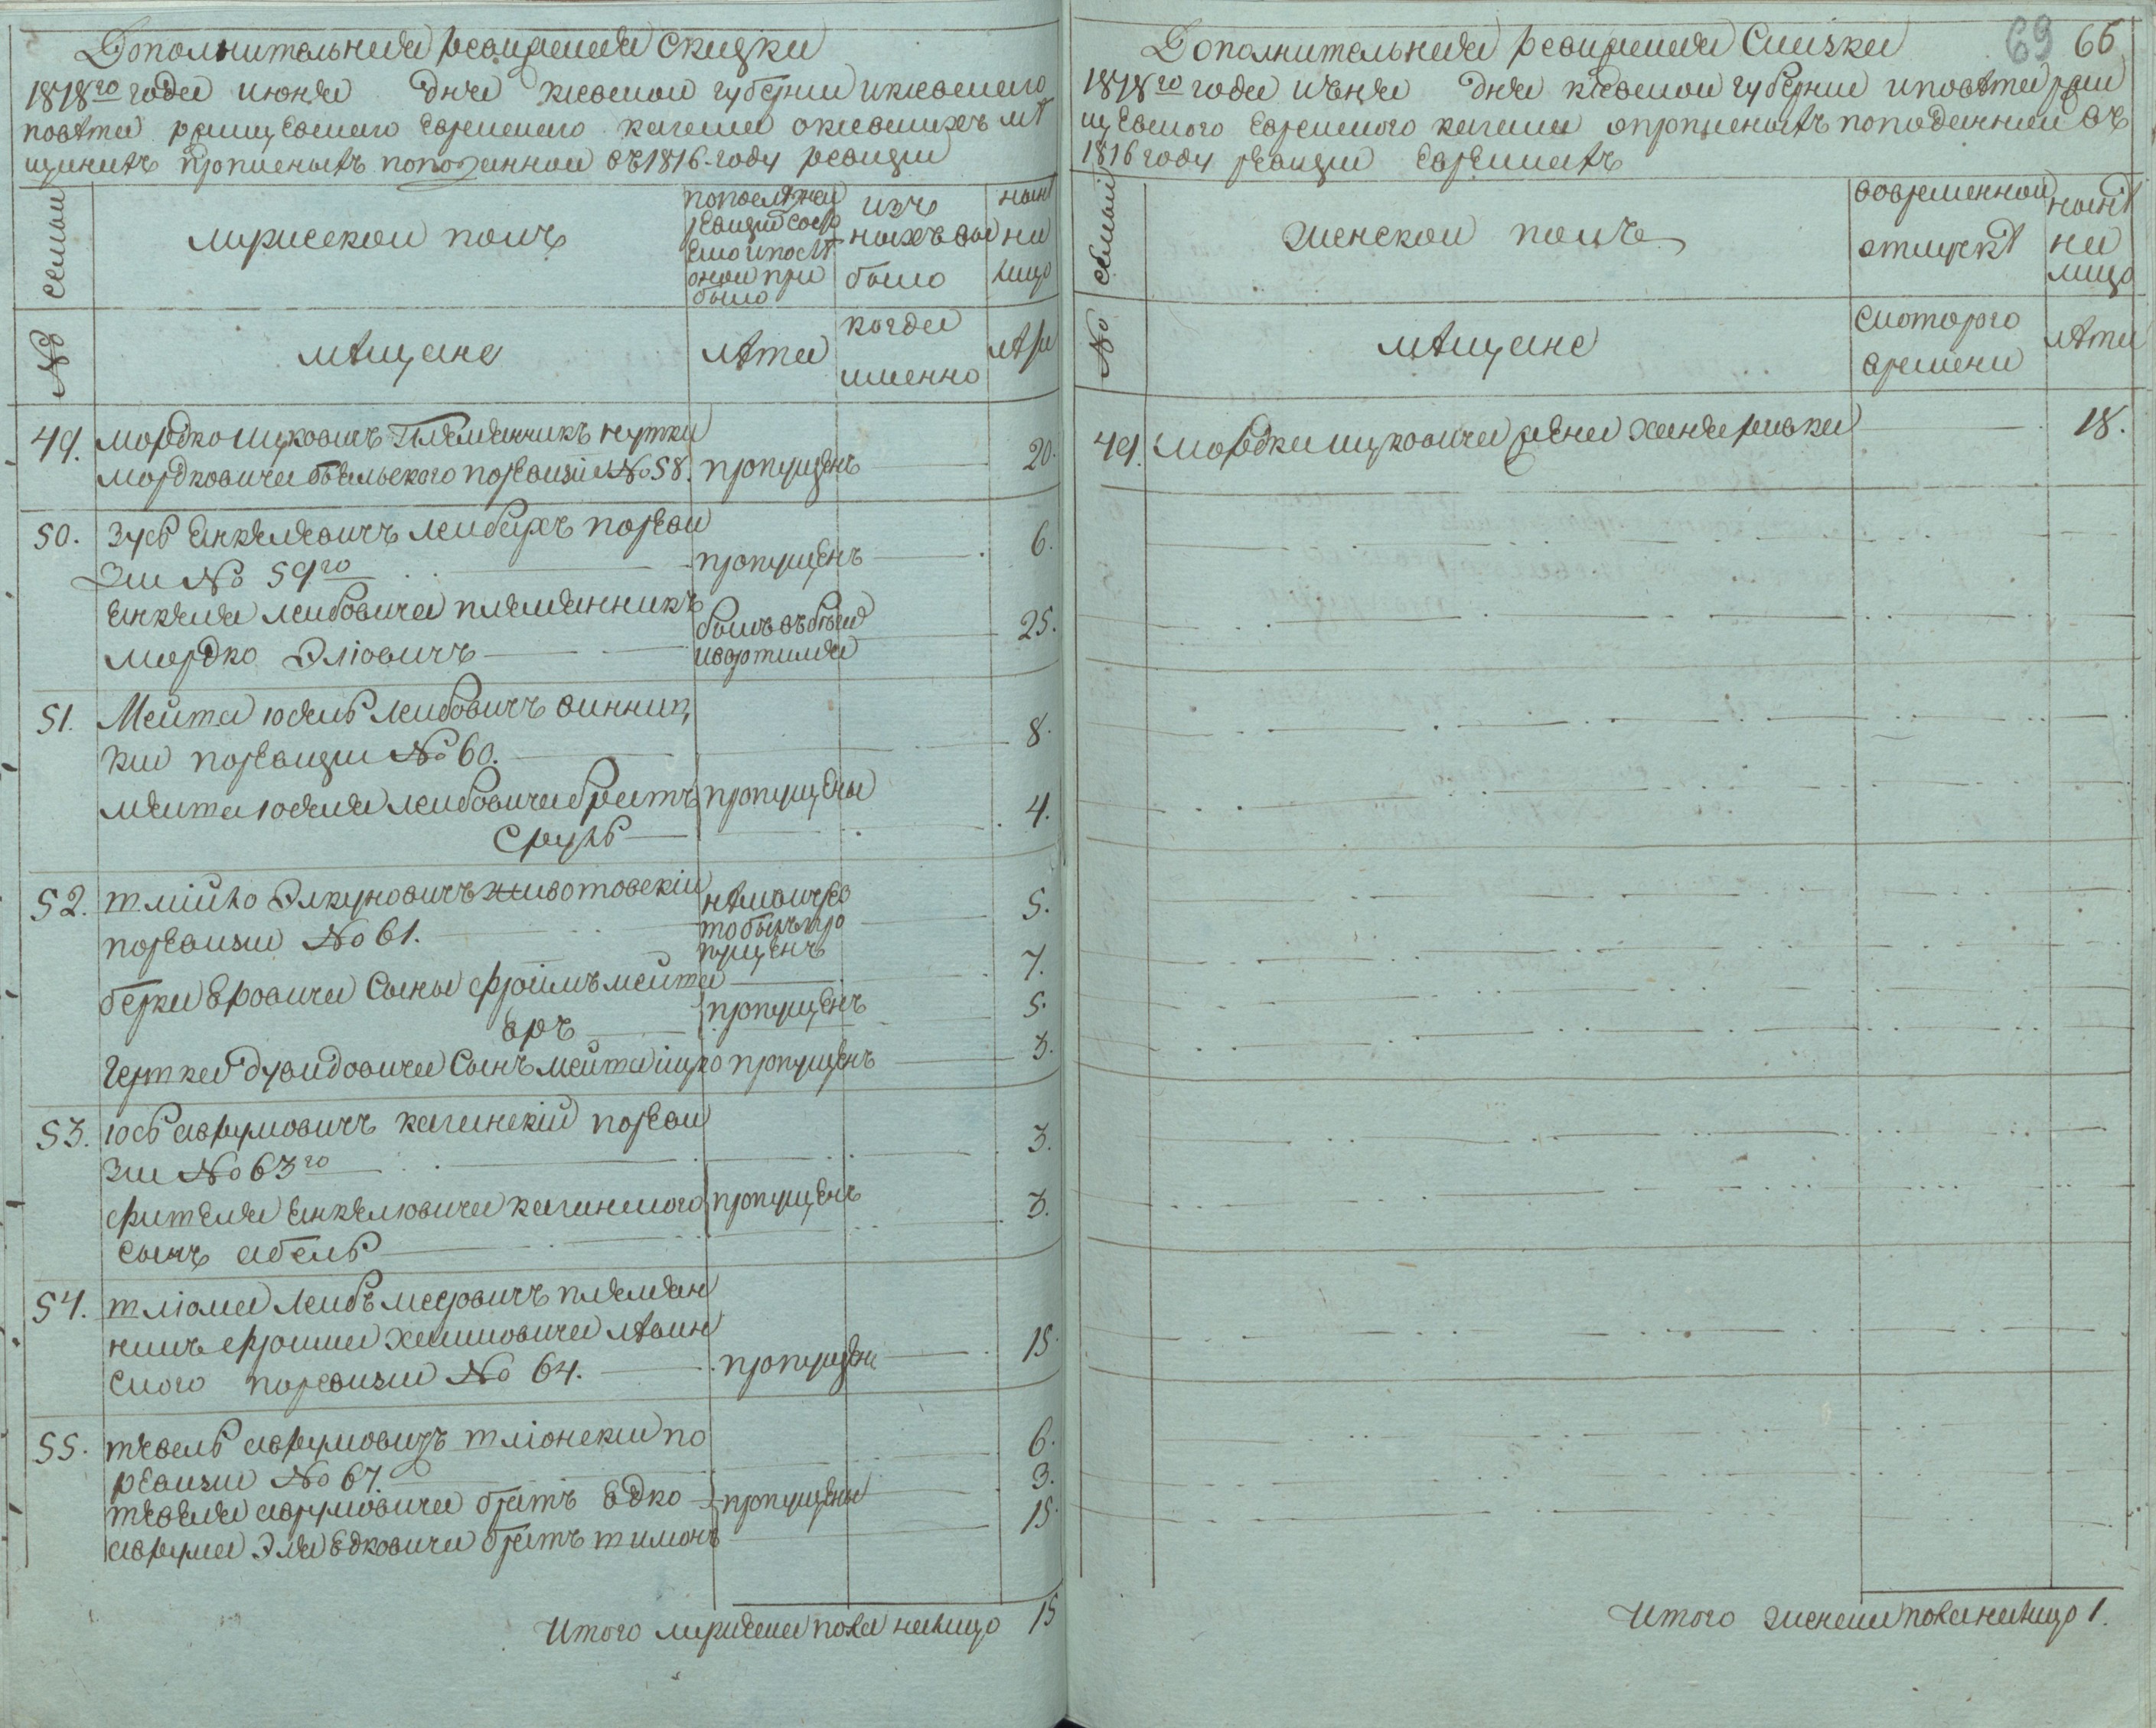 Дополнительная ревизская Скаска
1818го года июня дня киевской губернии и киевского
повѣта ращувского еврейского кагала о киевскихъ мѣ
щинахъ пропиеныхъ пополанной въ 1816-году ревизии
семьи
мужеской полъ
по последней ревизии состояло и после оной прибыло
изъ ныхъ выбыло
нынѣ на лицо
№
мѣщане
лѣта
когда именно
лѣта
49. мордко ицковичъ Племянникъ нутки
мордковича бѣльского поревизіи №58. пропущенъ 20.
50. Зусь Янкелевичъ лейберхъ пореви
зии № 59го пропущенъ 6.
Янкеля лейбовича племянникъ
мордко Эліовичъ 25.
51. Мейта юдель лейбовичъ винниц
кии поревиции № 60. 8.
меита юделя лейбовича братъ пропущены 4.
Сруль
52. шліойко Элкуновичъ животовскіи
поревизии № 61. 5.
пущенъ
берки Еровича Сыны фроимъ мейта 7.
еръ пропущенъ 5.
Гершка дувидовича Сынъ мейта ицко пропущенъ 3.
53. юсь аврумовичъ каганскій пореви
зии № 63го 3.
фишеля Янкелювича каганского пропущенъ 3.
сынъ абель
54. шліома лейбъ мееровичъ племян
никъ фроима хаимовича лѣвин
ского поревизии № 64. пропущенъ 15.
55. тевель аврумовичъ шліонский по
ревизии № 67. 6.
тевеля аврумовича братъ едко пропущены 3.
аврума Эля едковича братъ шимонъ 15.
Итого мужеска пола налицо 15
Дополнительная ревизская Скаска
69 66
1818го года июня дня киевской губернии и повѣта ращ
щувского еврейского кагала о пропущеныхъ пополанной въ
1816 году ревизии еврейкахъ
семьи
женской полъ
во временной отлучкѣ
нынѣ на лицо
№
мѣщане
с которого времени
лѣта
49. мордки ицковича жена ханя ривка 18.
Итого женска пола налицо 1.